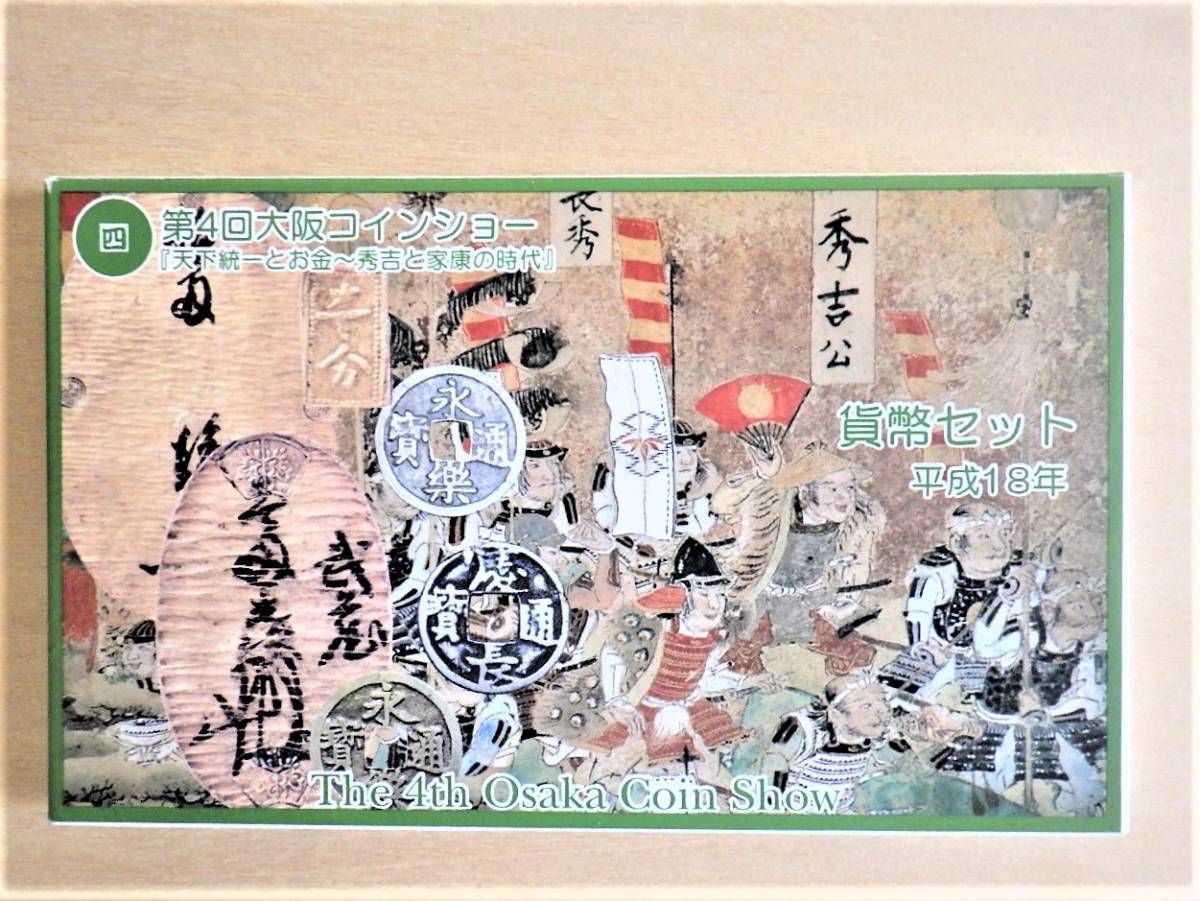 四
第4回大阪コインショー
『天下統一とお金～秀吉と家康の時代』
長秀
秀吉公
貨幣セット
平成18年
永樂通寳
慶長通寳
永通寳
The 4th Osaka Coin Show